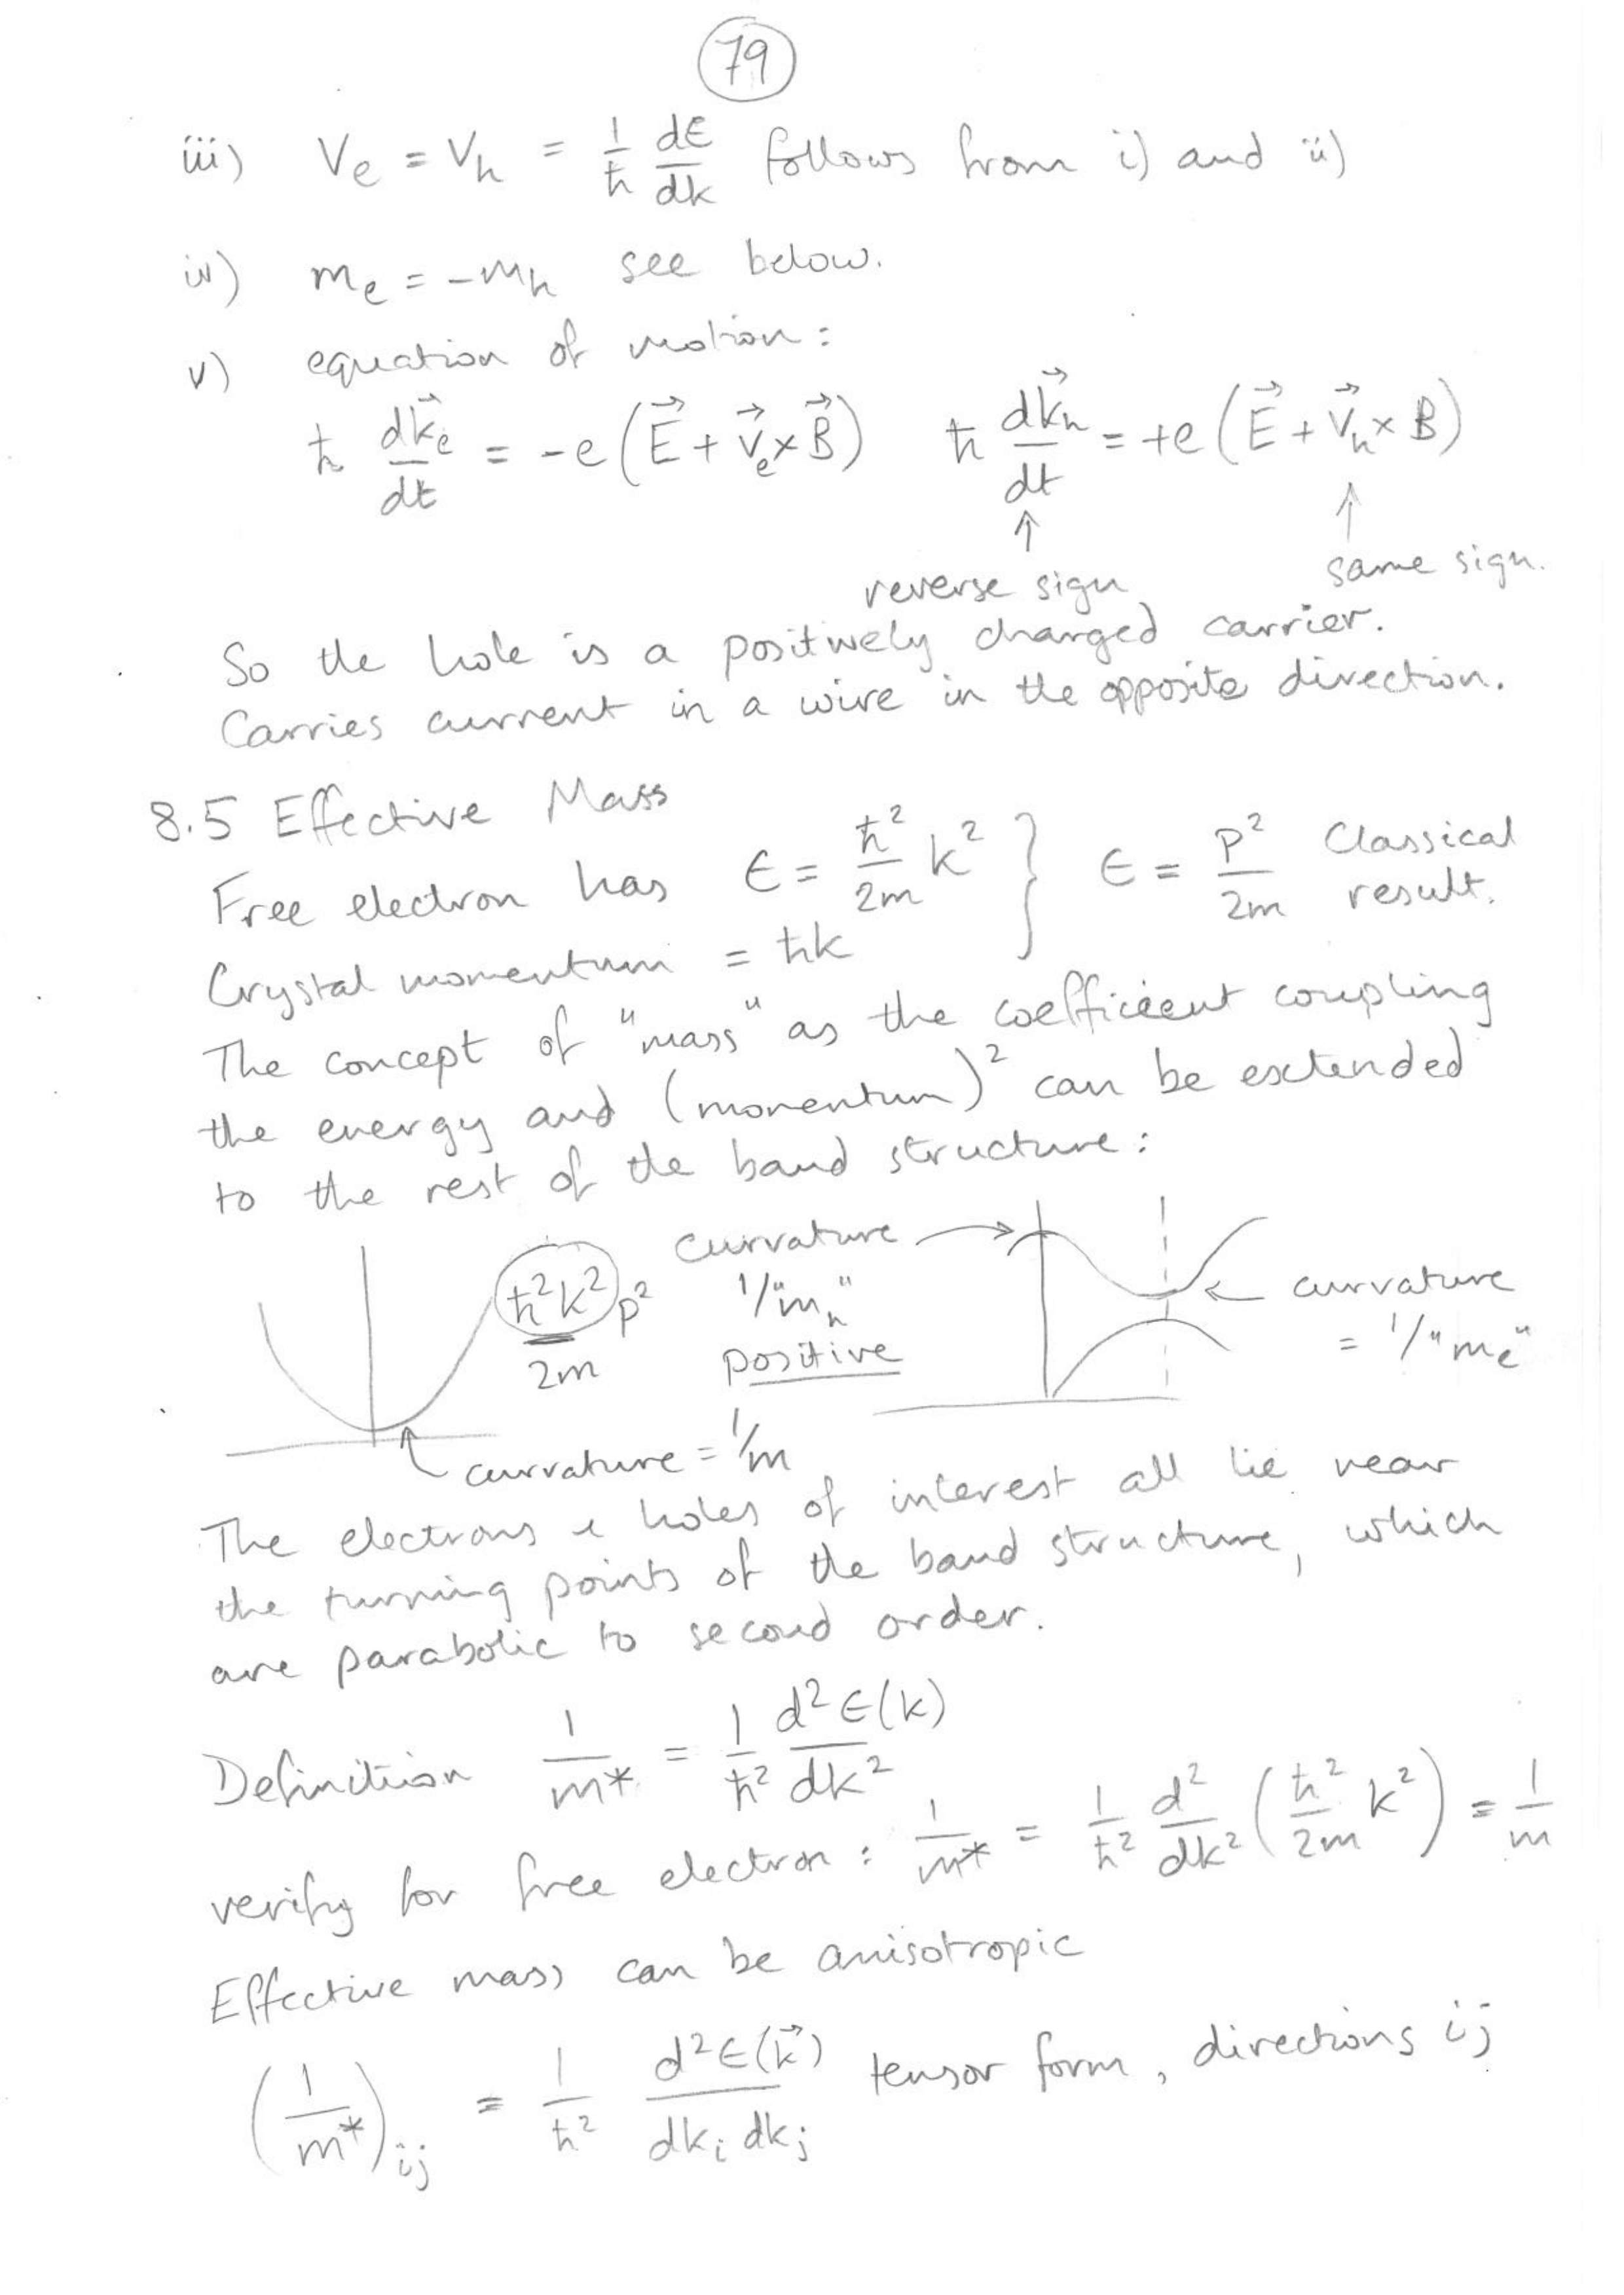 79
iii) Ve = Vh = 1/ħ dE/dk follows from i) and ii)
iv) me = -mh see below.
v) equation of motion:
ħ dk⃗e/dt = -e(E⃗ + v⃗e×B⃗) ħ dk⃗h/dt = +e(E⃗ + v⃗h×B)
↑ ↑
reverse sign same sign.
So the hole is a positively charged carrier.
Carries current in a wire in the opposite direction.
8.5 Effective Mass
Free electron has ϵ = ħ²/2m k² } ϵ = p²/2m Classical result.
Crystal momentum = ħk
The concept of "mass" as the coefficient coupling
the energy and (momentum)² can be extended
to the rest of the band structure:
ħ²k²/2m p²
curvature → 1/"mh" positive
← curvature = 1/"me"
curvature = 1/m
The electrons & holes of interest all lie near
the turning points of the band structure, which
are parabolic to second order.
Definition 1/m* = 1/ħ² d²ϵ(k)/dk²
verify for free electron: 1/m* = 1/ħ² d²/dk² (ħ²/2m k²) = 1/m
Effective mass can be anisotropic
(1/m*)ij = 1/ħ² d²ϵ(k⃗)/dki dkj tensor form, directions ij